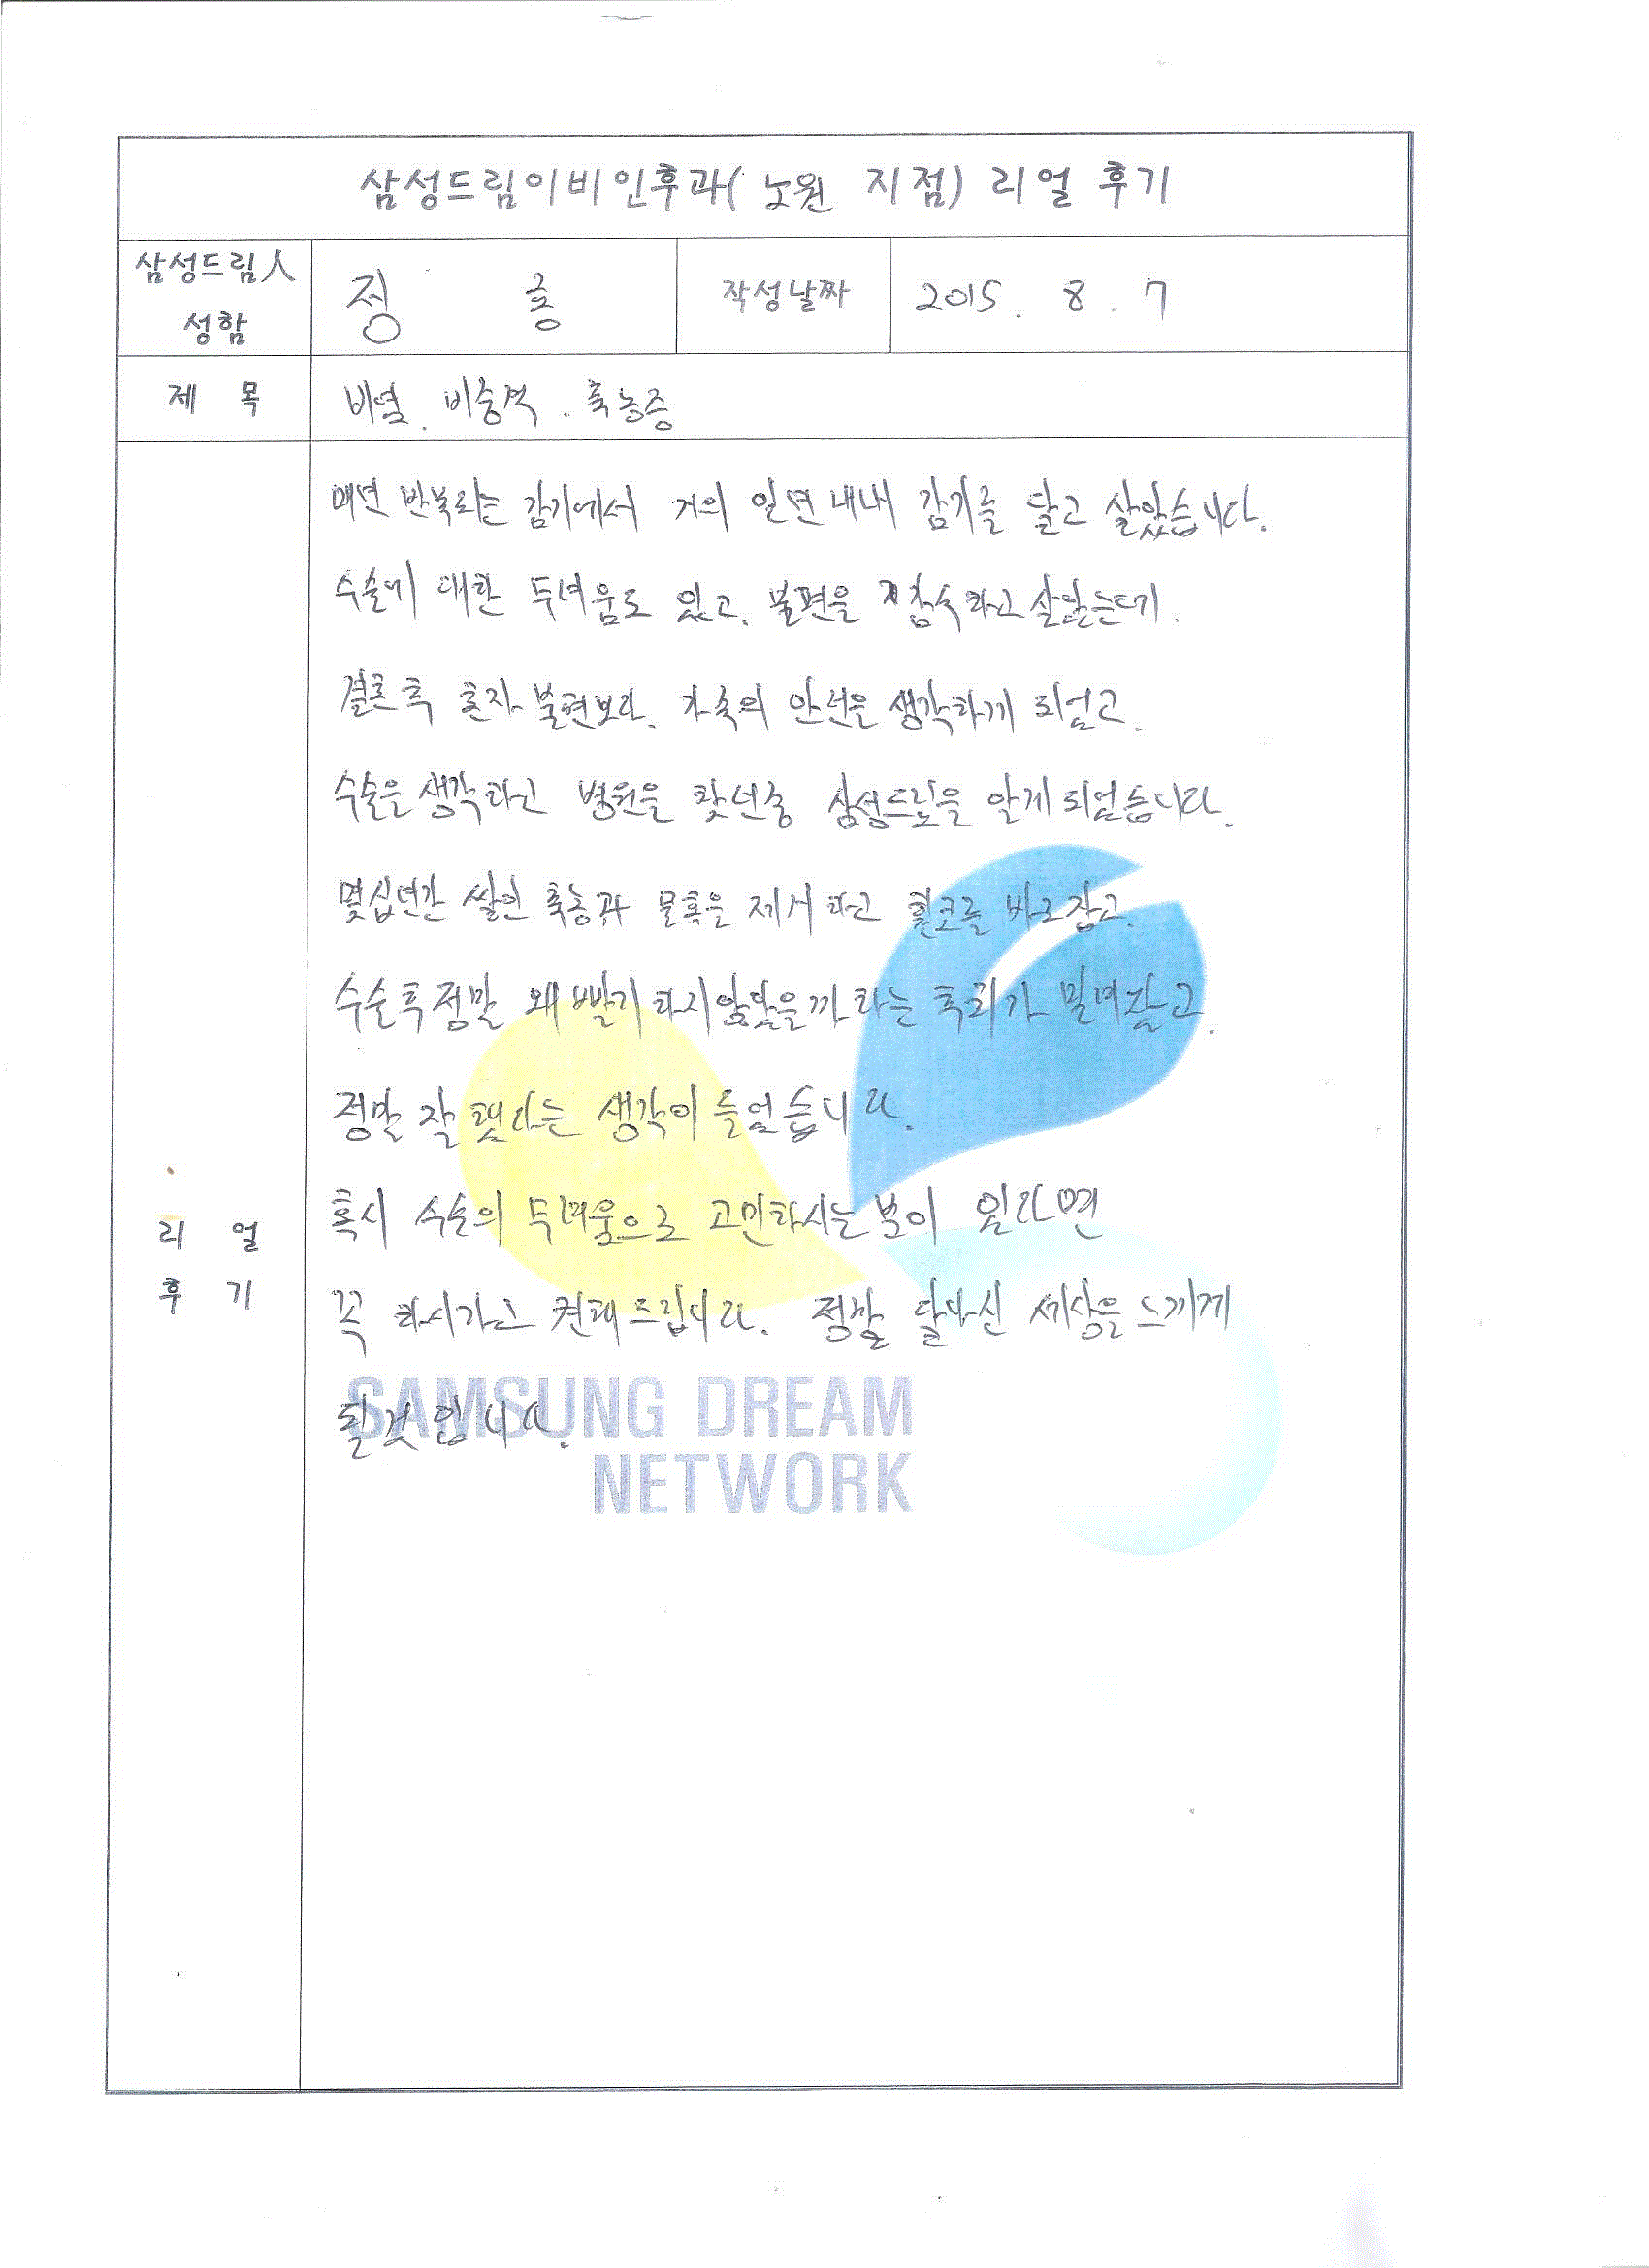 삼성드림이비인후과( 노원 지점) 리얼 후기
삼성드림人 성함
정 홍
작성날짜
2015. 8. 7
제 목
비염. 비중격. 축농증
매년 반복되는 감기에서 거의 일년내내 감기를 달고 살았습니다.
수술에 대한 두려움도 있고. 불편을 감수하고 살았는데.
결혼후 혼자 불편보다. 가족의 안녕을 생각하게 되었고.
수술을 생각하고 병원을 찾던중 삼성드림을 알게되었습니다.
몇십년간 쌓인 축농과 물혹은 제거하고 휜코를 바로잡고.
수술후 정말 왜 빨리 하지않았을까 라는 후회가 밀려왔고.
정말 잘 했다는 생각이 들었습니다.
혹시 수술의 두려움으로 고민하시는 분이 있다면
꼭 하시라고 권해드립니다. 정말 달라진 세상을 느끼게
될것입니다.
리 얼
후 기
SAMSUNG DREAM
NETWORK